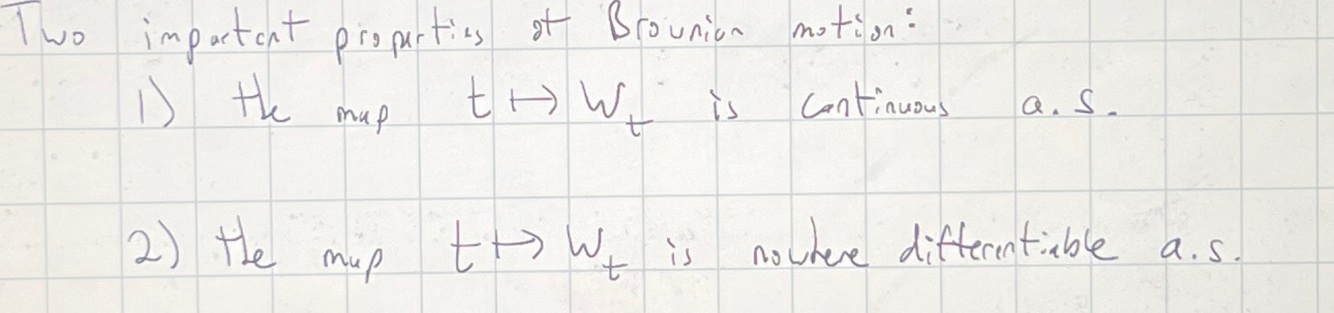 Two important properties of Brownian motion:
1) the map t ↦ W_t is continuous a.s.
2) the map t ↦ W_t is nowhere differentiable a.s.